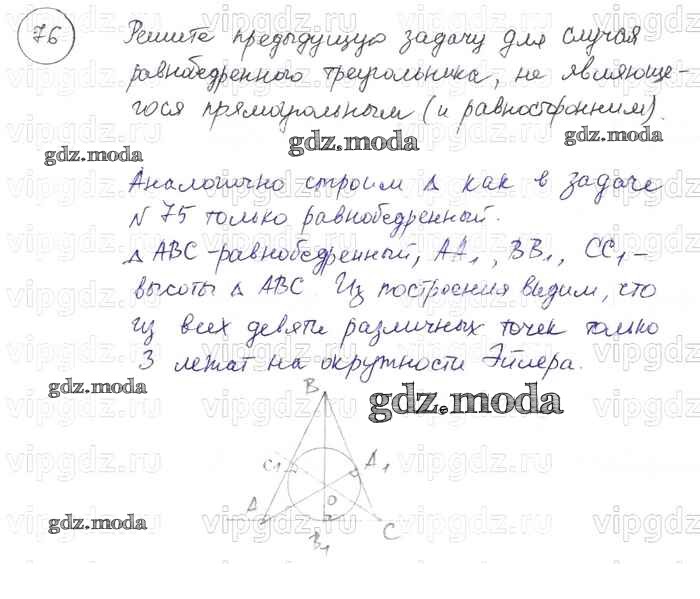 76
Решите предыдущую задачу для случая
равнобедренного треугольника, не являюще-
гося прямоугольным (и равносторонним).
gdz.moda
gdz.moda
gdz.moda
Аналогично строим Δ как в задаче
№75 только равнобедренный.
Δ ABC - равнобедренный, AA₁, BB₁, CC₁ -
высоты Δ ABC. Из построения видим, что
из всех девяти различных точек только
3 лежат на окружности Эйлера.
gdz.moda
gdz.moda
B
C₁
A₁
A
O
C
B₁
gdz.moda
vipgdz.ru